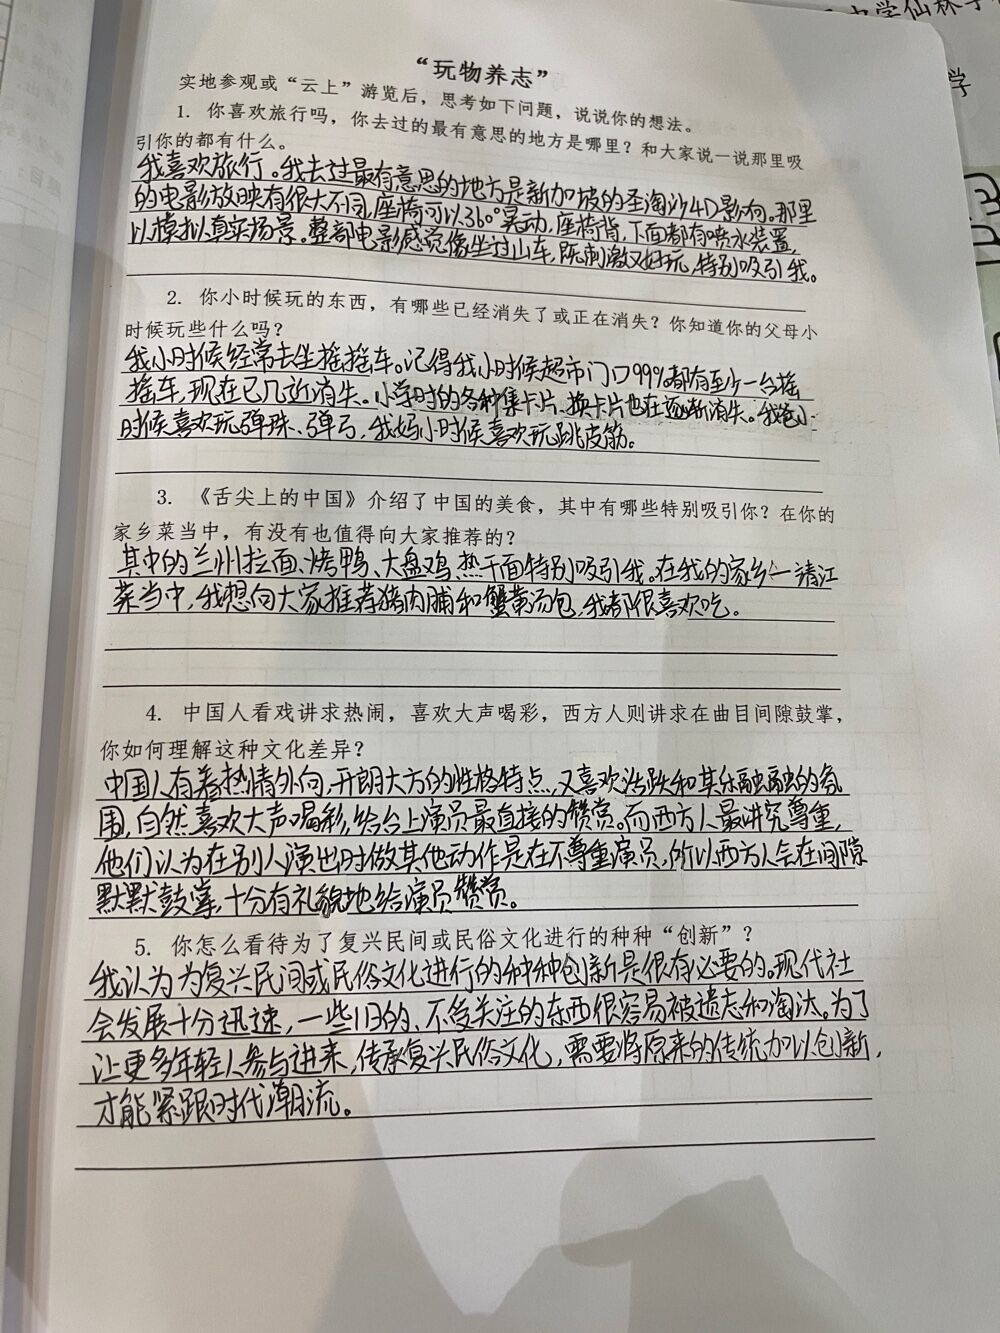 中学仙林学
学
“玩物养志”
实地参观或“云上”游览后，思考如下问题，说说你的想法。
1. 你喜欢旅行吗，你去过的最有意思的地方是哪里？和大家说一说那里吸
引你的都有什么。
我喜欢旅行。我去过最有意思的地方是新加坡的圣淘沙4D影向。那里
的电影放映有很大不同，座椅可以360°晃动，座椅背，下面都有喷水装置，
以模拟真实场景。整部电影感觉像坐过山车，既刺激又好玩，特别吸引我。
2. 你小时候玩的东西，有哪些已经消失了或正在消失？你知道你的父母小
时候玩些什么吗？
我小时候经常去坐摇摇车。记得我小时候超市门口99%都有至少一台摇
摇车，现在已几近消失。小学时的各种集卡片、换卡片也在逐渐消失。我爸小
时候喜欢玩弹珠、弹弓，我妈小时候喜欢玩跳皮筋。
3. 《舌尖上的中国》介绍了中国的美食，其中有哪些特别吸引你？在你的
家乡菜当中，有没有也值得向大家推荐的？
其中的兰州拉面、烤鸭、大盘鸡，热干面特别吸引我。在我的家乡—靖江
菜当中，我想向大家推荐猪肉脯和蟹黄汤包，我都很喜欢吃。
4. 中国人看戏讲求热闹，喜欢大声喝彩，西方人则讲求在曲目间隙鼓掌，
你如何理解这种文化差异？
中国人有着热情外向，开朗大方的性格特点，又喜欢活跃和其乐融融的氛
围，自然喜欢大声喝彩，给台上演员最直接的赞赏。而西方人最讲究尊重，
他们认为在别人演出时做其他动作是在不尊重演员，所以西方人会在间隙
默默鼓掌，十分有礼貌地给演员赞赏。
5. 你怎么看待为了复兴民间或民俗文化进行的种种“创新”？
我认为为复兴民间或民俗文化进行的种种创新是很有必要的。现代社
会发展十分迅速，一些旧的、不受关注的东西很容易被遗忘和淘汰。为了
让更多年轻人参与进来，传承复兴民俗文化，需要将原来的传统加以创新，
才能紧跟时代潮流。